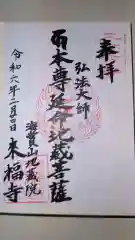 奉拝
弘法大師
本尊延命地蔵菩薩
海賓山地蔵院
来福寺
令和六年二月